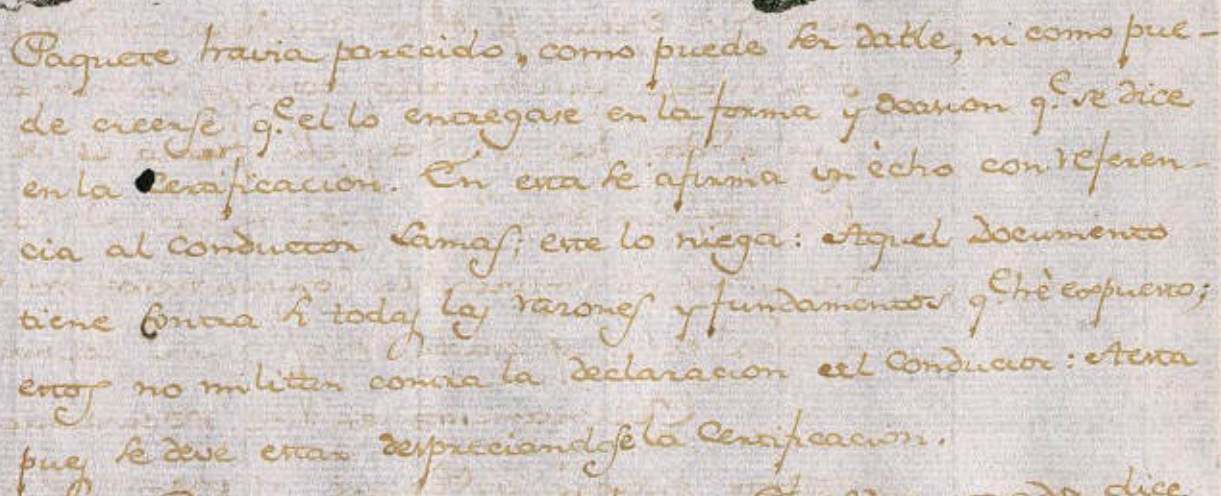 Paquete havia parecido, como puede ser dable, ni como pue-
de creerse q.e el lo entregase en la forma y ocasion q.e se dice
en la Certificacion. En esta se afirma unècho con referen-
cia al conductor Lamas; este lo niega: Aquel Documento
tiene contra si todas las razones y fundamentos q.e hè expuesto;
estos no militan contra la declaracion del Conductor: A esta
pues se deve estar despreciandose la Certificacion.
dice